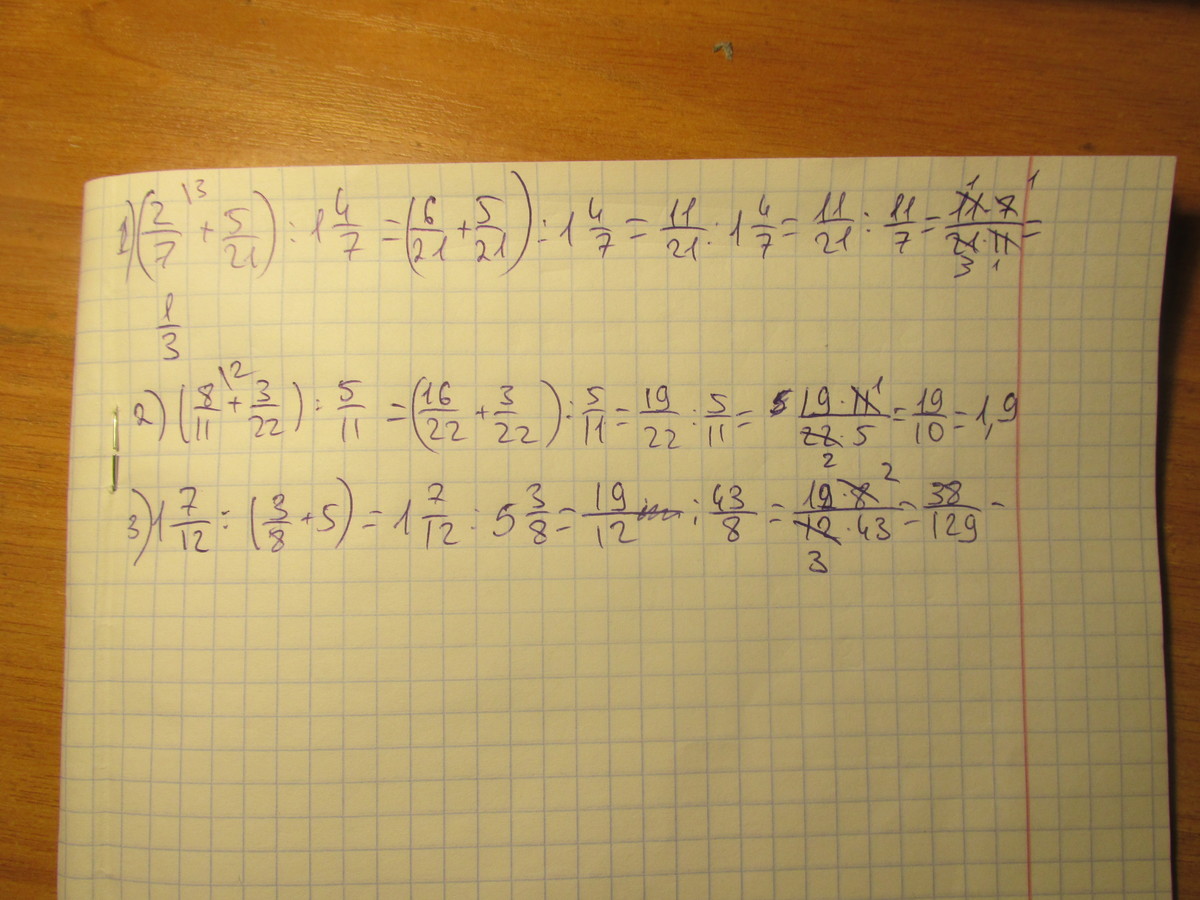 1) (2/7 \3 + 5/21) : 1 4/7 = (6/21 + 5/21) : 1 4/7 = 11/21 : 1 4/7 = 11/21 : 11/7 = 11·7/21·11 1 1 3 1 =
1/3
2) (8/11 \2 + 3/22) : 5/11 = (16/22 + 3/22) : 5/11 = 19/22 : 5/11 = 19·11/22·5 1 2 = 19/10 = 1,9
3) 1 7/12 : (3/8 + 5) = 1 7/12 : 5 3/8 = 19/12 : 43/8 = 19·8/12·43 2 3 = 38/129 -